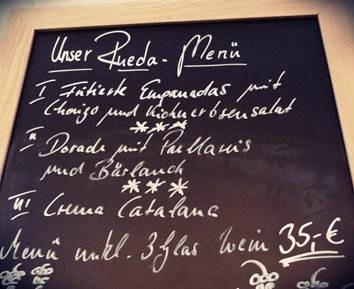 Unser Rueda-Menü
I Fritierte Empanadas mit
Chorizo und Kichererbsensalat
***
II Dorade mit Paellareis
und Bärlauch
***
III Crema Catalana
Menü inkl. 3 Glas Wein 35,-€